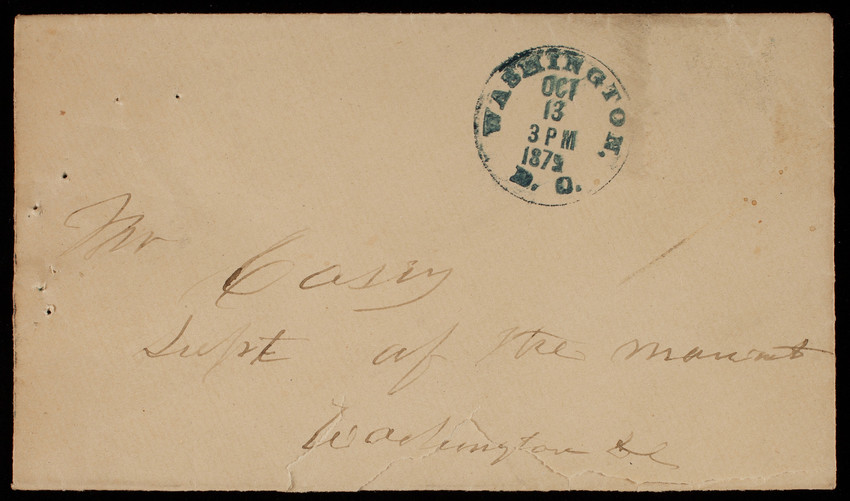 WASHINGTON.
OCT
13
3 PM
1879
D. C.
Mr
Casey
Supt of the
Washington DC